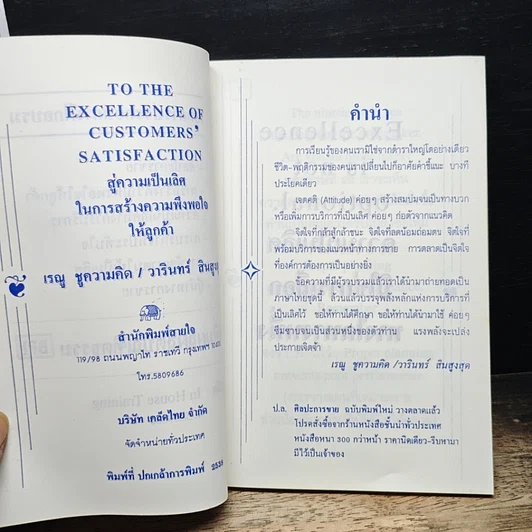 TO THE
EXCELLENCE OF
CUSTOMERS'
SATISFACTION
สู่ความเป็นเลิศ
ในการสร้างความพึงพอใจ
ให้ลูกค้า
เรณู ชูความคิด / วารินทร์ สินสูงสุด
สำนักพิมพ์สายใจ
119/98 ถนนพญาไท ราชเทวี กรุงเทพฯ 10400
โทร.5809686
บริษัท เคล็ดไทย จำกัด
จัดจำหน่ายทั่วประเทศ
พิมพ์ที่ ปกเกล้าการพิมพ์
คำนำ
การเรียนรู้ของคนเรามิใช่จากตำราใหญ่โตอย่างเดียว
ชีวิต-พฤติกรรมของคนเราเปลี่ยนไปก็อาศัยคำชี้แนะ บางที
ประโยคเดียว
เจตคติ (Attitude) ค่อยๆ สร้างสมบ่มจนเป็นทางบวก
หรือเพิ่มการบริการที่เป็นเลิศ ค่อยๆ ก่อตัวจากแนวคิด
จิตใจที่กล้าสู้กล้าชนะ จิตใจที่ลดน้อมถ่อมตน จิตใจที่
พร้อมบริการของแนวหน้าทางการขาย การตลาดเป็นจิตใจ
ที่องค์การต้องการเป็นอย่างยิ่ง
ข้อความที่มีผู้รวบรวมแล้วเราได้นำมาถ่ายทอดเป็น
ภาษาไทยชุดนี้ ล้วนแล้วบรรจุพลังหลักแห่งการบริการที่
เป็นเลิศไว้ ขอให้ท่านได้ศึกษา ขอให้ท่านได้นำมาใช้ ค่อยๆ
ซึมซาบจนเป็นส่วนหนึ่งของตัวท่าน แรงพลังจะเปล่ง
ประกายเจิดจ้า
เรณู ชูความคิด /วารินทร์ สินสูงสุด
ป.ล. ศิลปะการขาย ฉบับพิมพ์ใหม่ วางตลาดแล้ว
โปรดสั่งซื้อจากร้านหนังสือชั้นนำทั่วประเทศ
หนังสือหนา 300 กว่าหน้า ราคานิดเดียว-รีบหามา
มีไว้เป็นเจ้าของ
In House Training